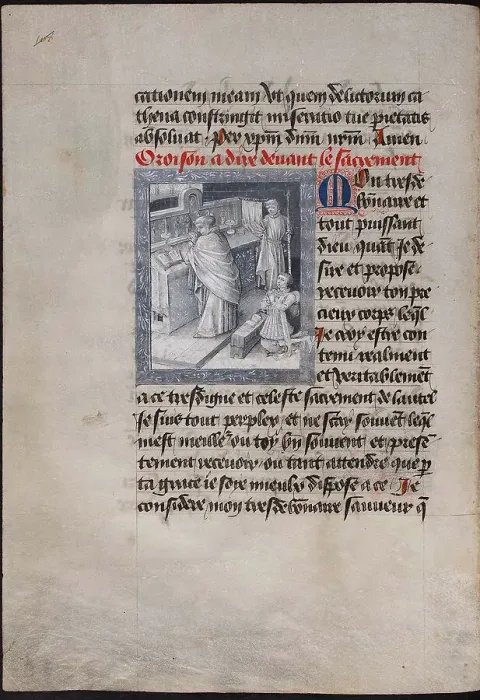 cationem meam vt quem delictorum ca
thena constringit miseratio tue pietatis
absoluat. Per xp̄m dn̄m nr̄m Amen
Oroison a dire deuant le sacrement
Mon tresde
bōnaire et
tout puissant
dieu quāt Je de
sire et propose
receuoir ton pre
cieux corps leq̄l
Je croy estre con
tenu realment
et veritablemēt
a ce tresdigne et celeste sacrement de lautel
Je suis tout perplex et ne scay souuēt leq̄l
mest meilleᵘ ou toy bn̄ souuent et presē
tement receuoir ou tant attendre que p̱
ta grace ie soie mieulx dispose a ce Je
considere mon tresdebōnaire sauueur q̄